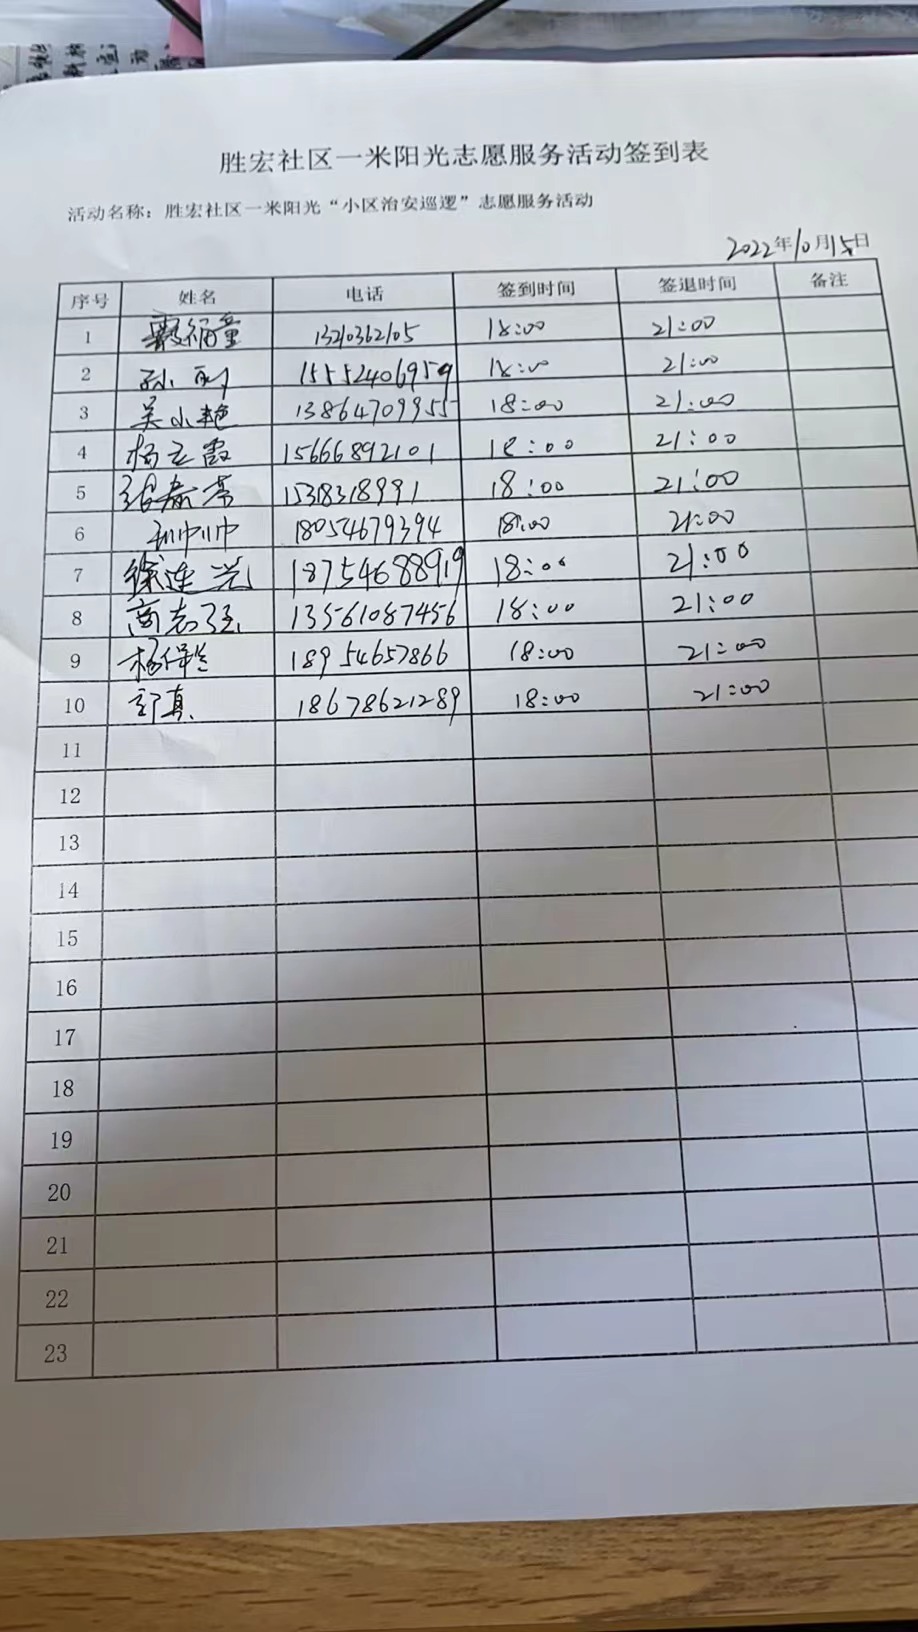 胜宏社区一米阳光志愿服务活动签到表
活动名称：胜宏社区一米阳光“小区治安巡逻”志愿服务活动
2022年10月15日
序号 姓名 电话 签到时间 签退时间 备注
1 18:00 21:00
2 孙 15552406959 18:00 21:00
3 吴小艳 13864709955 18:00 21:00
4 杨立霞 15666892101 18:00 21:00
5 张春芳 15318318991 18:00 21:00
6 18054679394 18:00 21:00
7 徐连光 18754688919 18:00 21:00
8 商志强 13561087456 18:00 21:00
9 杨保兰 18954657866 18:00 21:00
10 郭真 18678621289 18:00 21:00
11
12
13
14
15
16
17
18
19
20
21
22
23